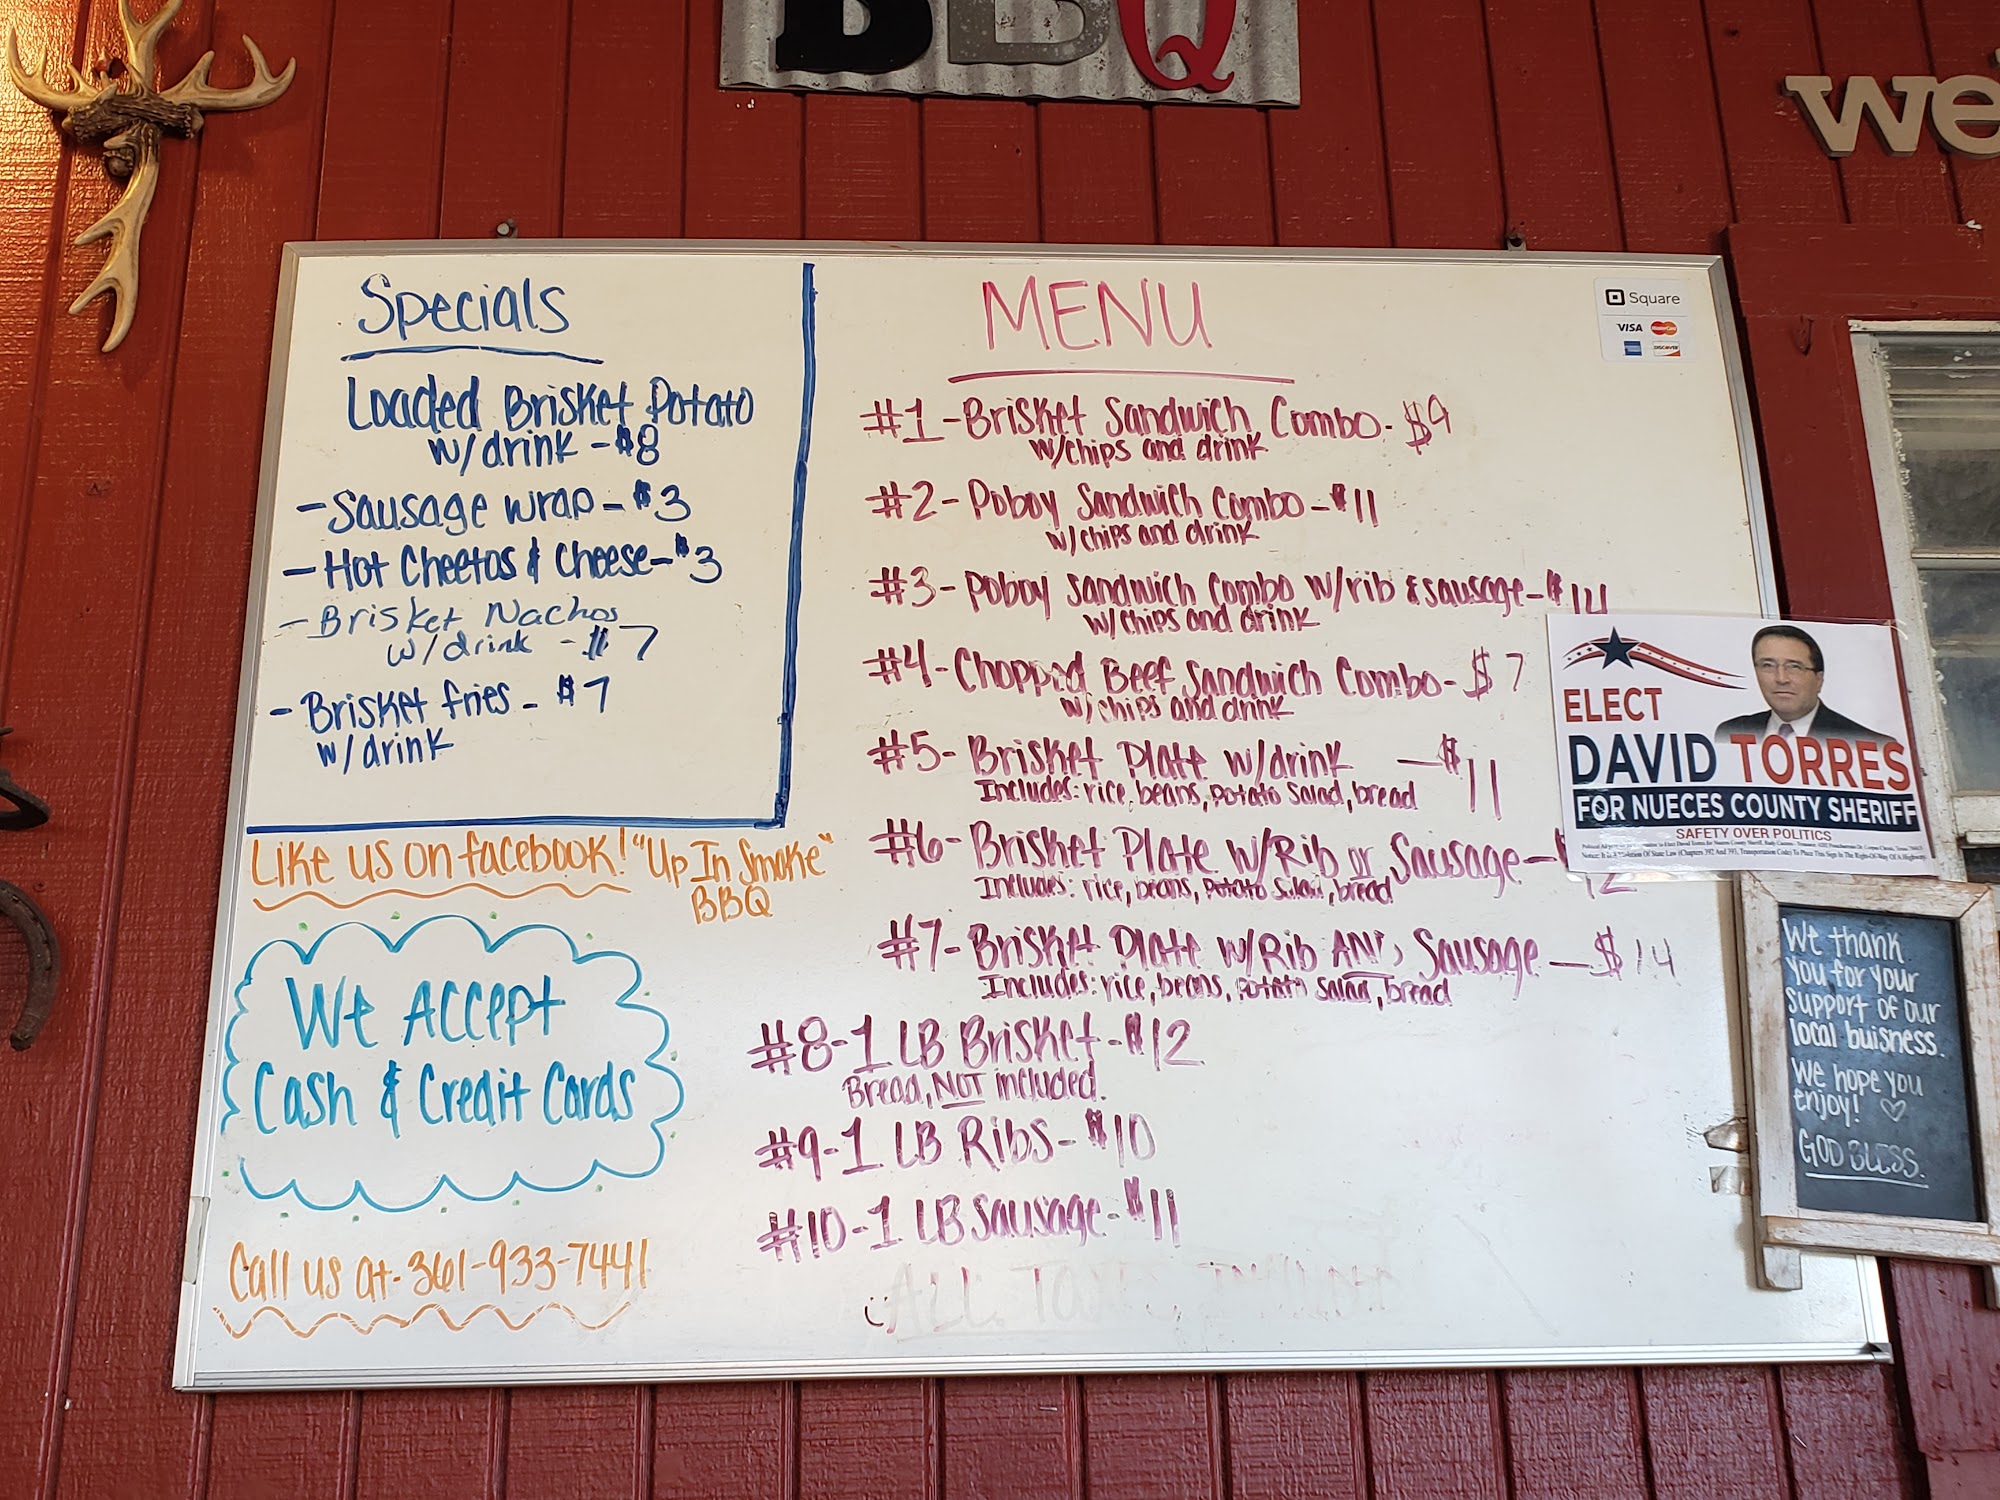 BBQ
we
Specials
Loaded Brisket Potato
w/drink - $8
- Sausage wrap - $3
- Hot Cheetos & Cheese - $3
- Brisket Nachos
w/drink - $7
- Brisket fries - $7
w/drink
Like us on facebook! "Up In Smoke"
BBQ
We Accept
Cash & Credit Cards
Call us at - 361-933-7441
MENU
#1 - Brisket Sandwich Combo - $9
w/chips and drink
#2 - Poboy Sandwich Combo - $11
w/chips and drink
#3 - Poboy Sandwich Combo w/rib & sausage - $14
w/chips and drink
#4 - Chopped Beef Sandwich Combo - $7
w/chips and drink
#5 - Brisket Plate w/drink - $11
Includes: rice, beans, potato salad, bread
#6 - Brisket Plate w/Rib or Sausage - $12
Includes: rice, beans, potato salad, bread
#7 - Brisket Plate w/Rib AND Sausage - $14
Includes: rice, beans, potato salad, bread
#8 - 1 LB Brisket - $12
Bread, NOT included.
#9 - 1 LB Ribs - $10
#10 - 1 LB Sausage - $11
ALL TAXES INCLUDED
Square
VISA MasterCard
DISCOVER
ELECT
DAVID TORRES
FOR NUECES COUNTY SHERIFF
SAFETY OVER POLITICS
We thank
you for your
support of our
local buisness.
We hope you
enjoy! ♡
GOD BLESS.